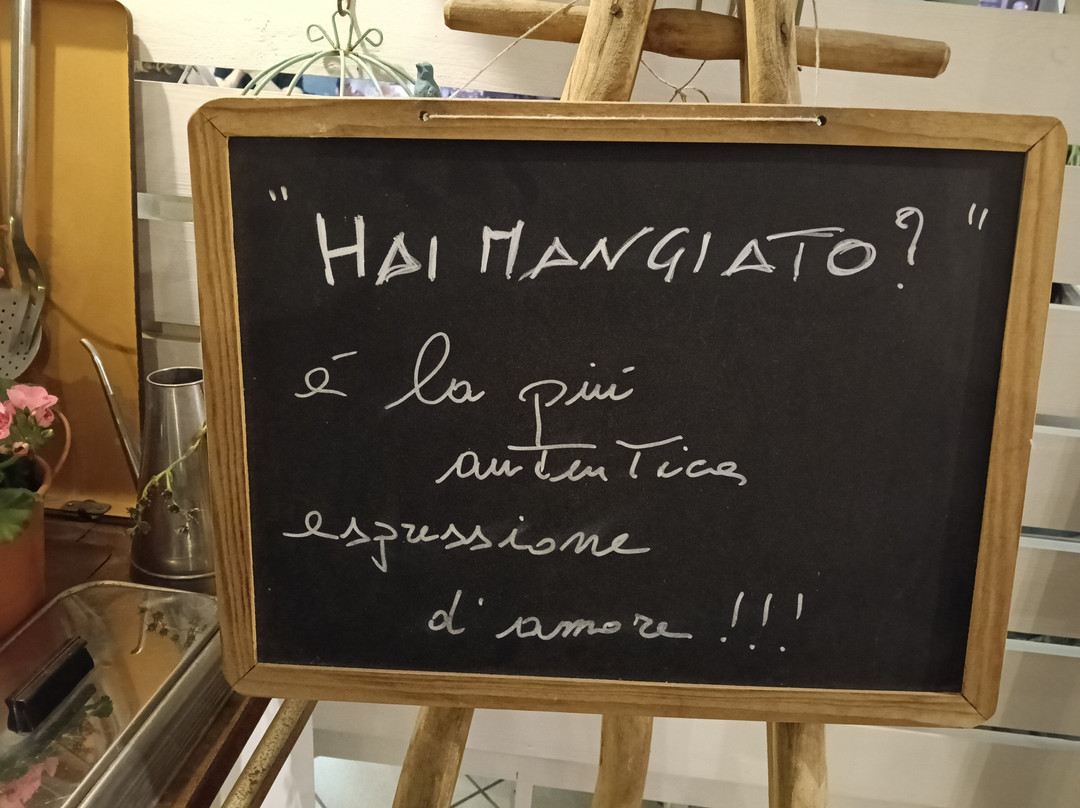 "HAI MANGIATO?"
é la piú
autentica
espressione
d'amore!!!